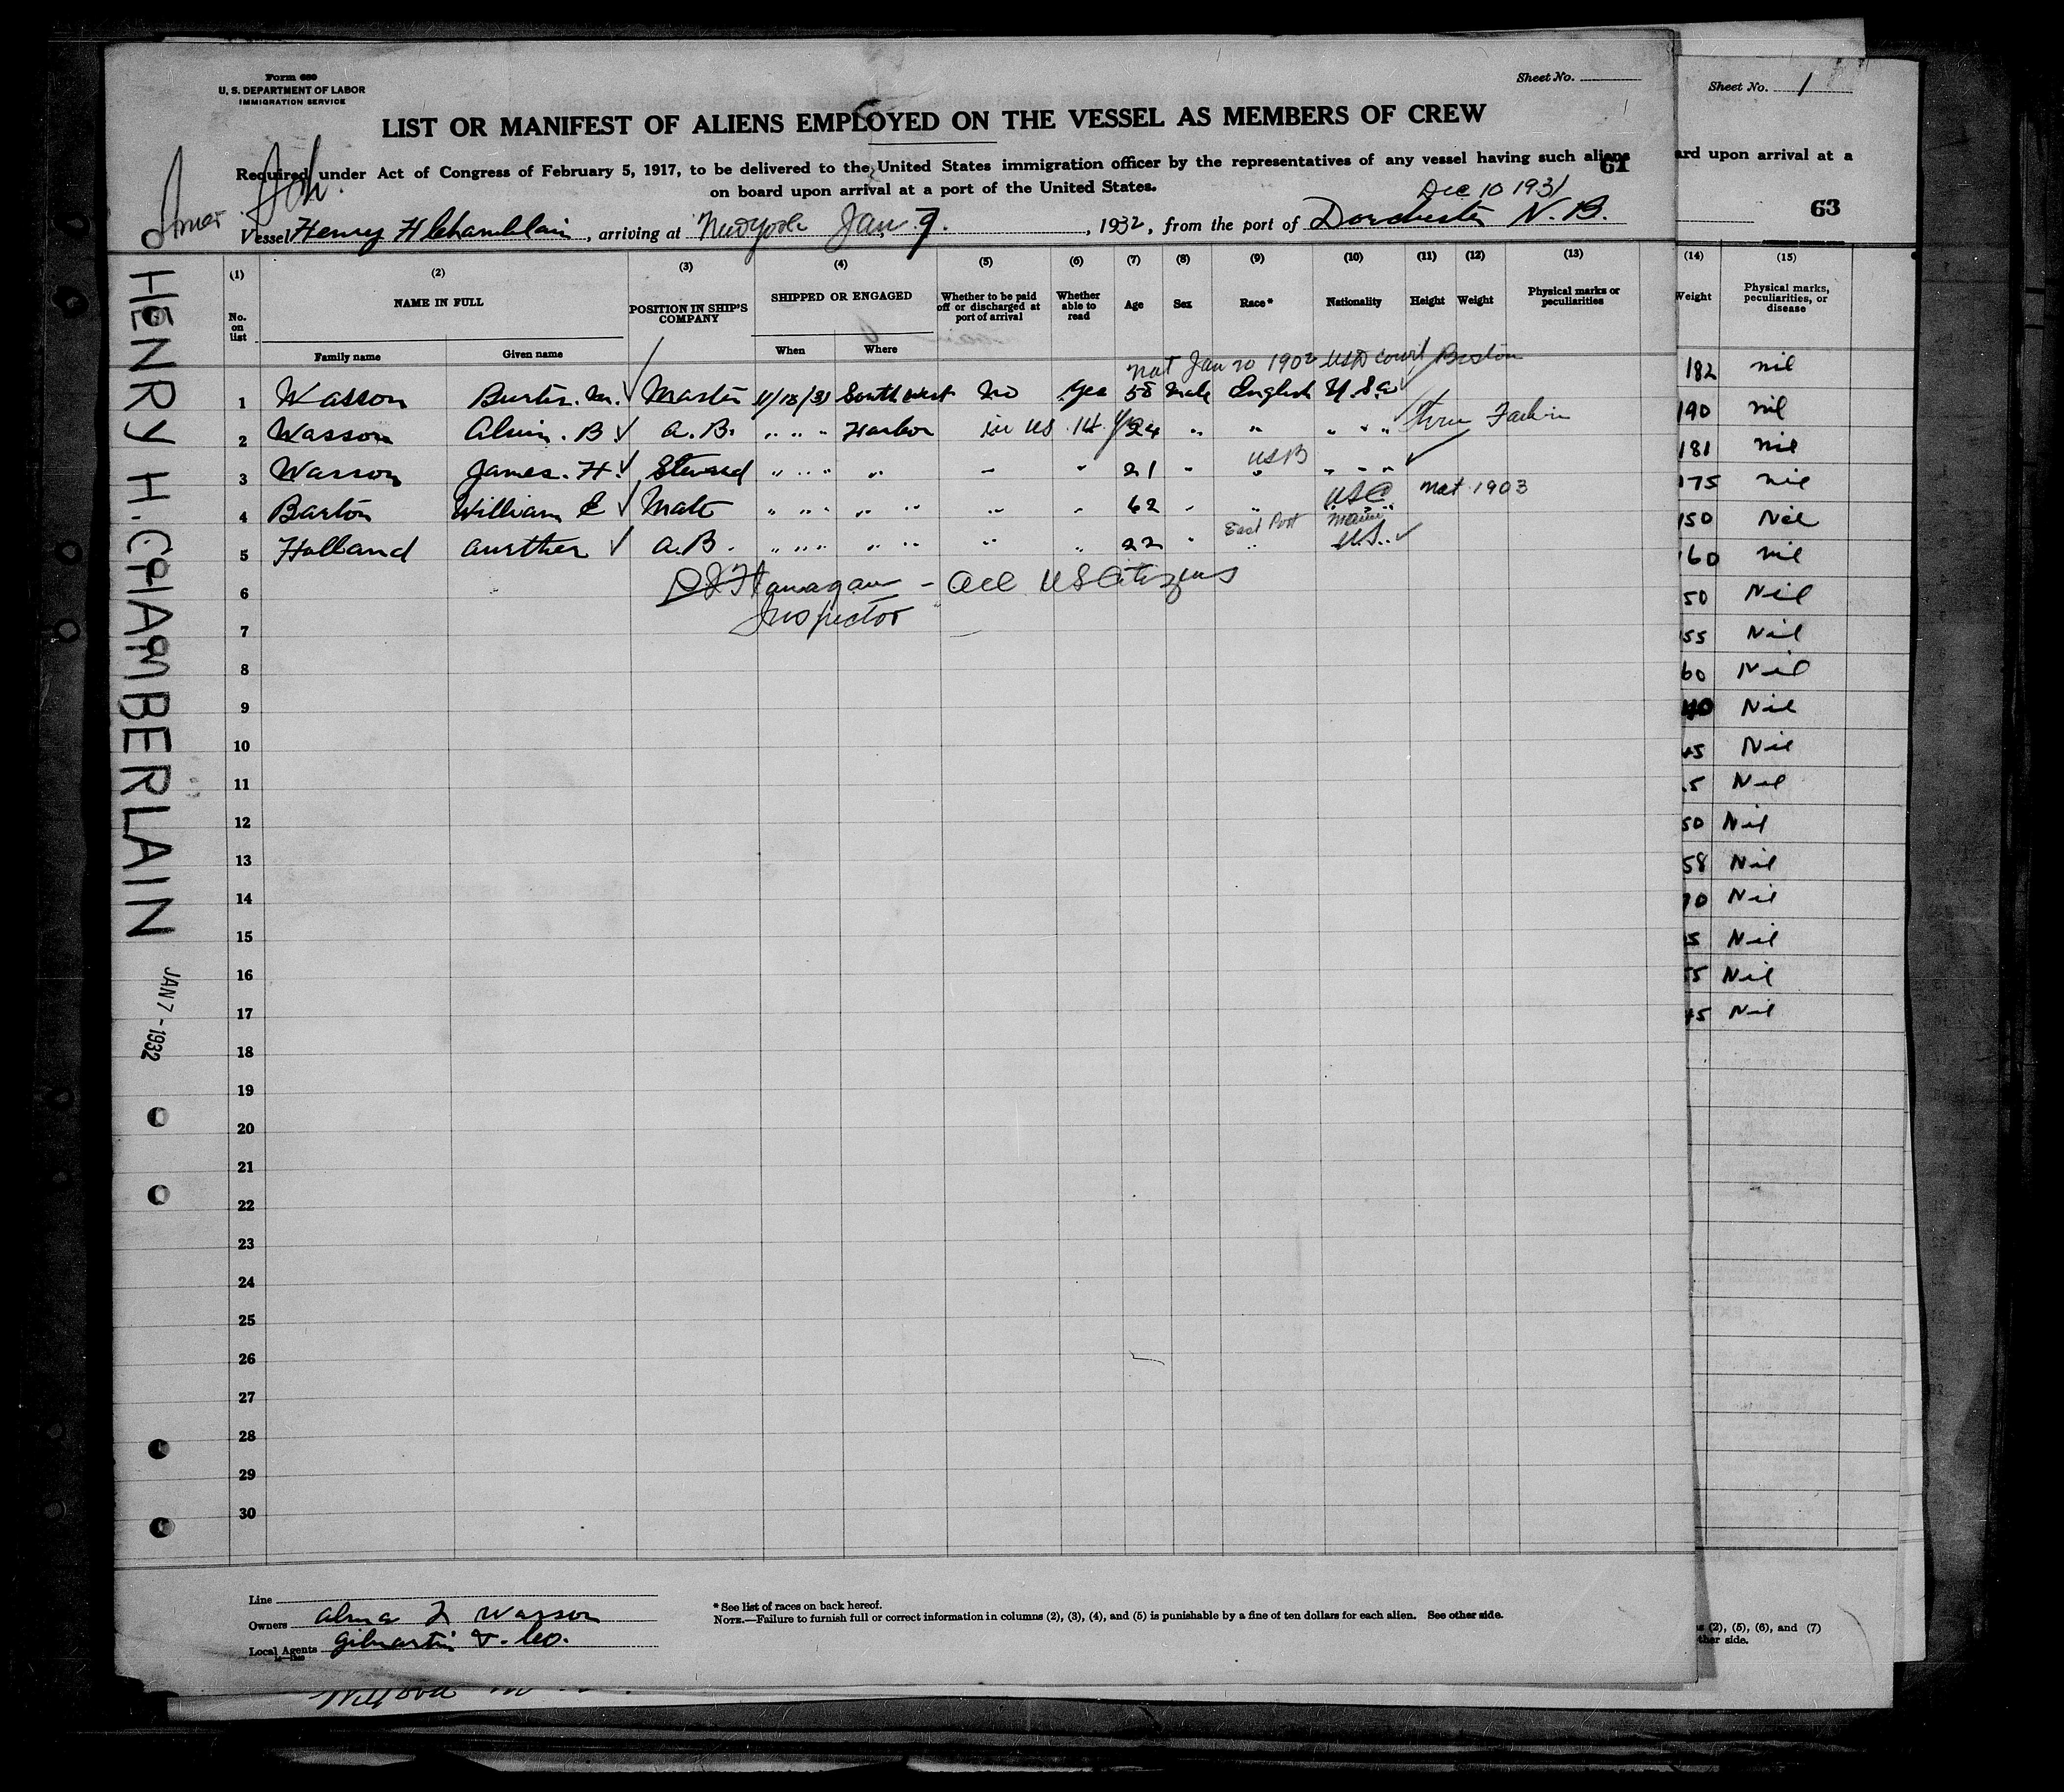 Form 689
U. S. DEPARTMENT OF LABOR
IMMIGRATION SERVICE
Sheet No.
LIST OR MANIFEST OF ALIENS EMPLOYED ON THE VESSEL AS MEMBERS OF CREW
Required under Act of Congress of February 5, 1917, to be delivered to the United States immigration officer by the representatives of any vessel having such aliens
61
on board upon arrival at a port of the United States.
Dec 10 1931
Amer Sch.
Vessel Henry H Chamblain, arriving at New York Jan 7., 1932, from the port of Dorchester N. B.
(1) (2) (3) (4) (5) (6) (7) (8) (9) (10) (11) (12) (13)
No. on list
NAME IN FULL
Family name Given name
POSITION IN SHIP'S COMPANY
SHIPPED OR ENGAGED
When Where
Whether to be paid off or discharged at port of arrival
Whether able to read
Age Sex Race* Nationality Height Weight
Physical marks or peculiarities
nat Jan 20 1902 USD Court Boston
1 Wasson Burton. M. Master 11/18/31 South west No Yes 58 Male English U.S.a
2 Wasson Alvin. B A. B. " " " Harbor in US 14 yrs 24 " " " " " thru Father
USB
3 Wasson James. H. Steward " " " " " " 21 " " " " "
USC nat 1903
4 Barton William E Mate " " " " " " " 62 " " " " "
East Port Maine
5 Holland Aurther A.B. " " " " " " " 22 " " U.S.
6 Flanagan - All US Citizens
Inspector
7
8
9
10
11
12
13
14
15
16
17
18
19
20
21
22
23
24
25
26
27
28
29
30
Line
Owners Alma F Wasson
Local Agents Gilmartin & Co.
* See list of races on back hereof.
NOTE.—Failure to furnish full or correct information in columns (2), (3), (4), and (5) is punishable by a fine of ten dollars for each alien. See other side.
HENRY H. CHAMBERLAIN
JAN 7 - 1932
Sheet No. 1
ard upon arrival at a
63
(14) (15)
Weight
Physical marks, peculiarities, or disease
182 nil
190 nil
181 nil
175 nil
150 Nil
60 nil
50 Nil
55 Nil
60 Nil
40 Nil
45 Nil
5 Nil
50 Nil
58 Nil
70 Nil
5 Nil
55 Nil
45 Nil
(2), (5), (6), and (7)
other side.